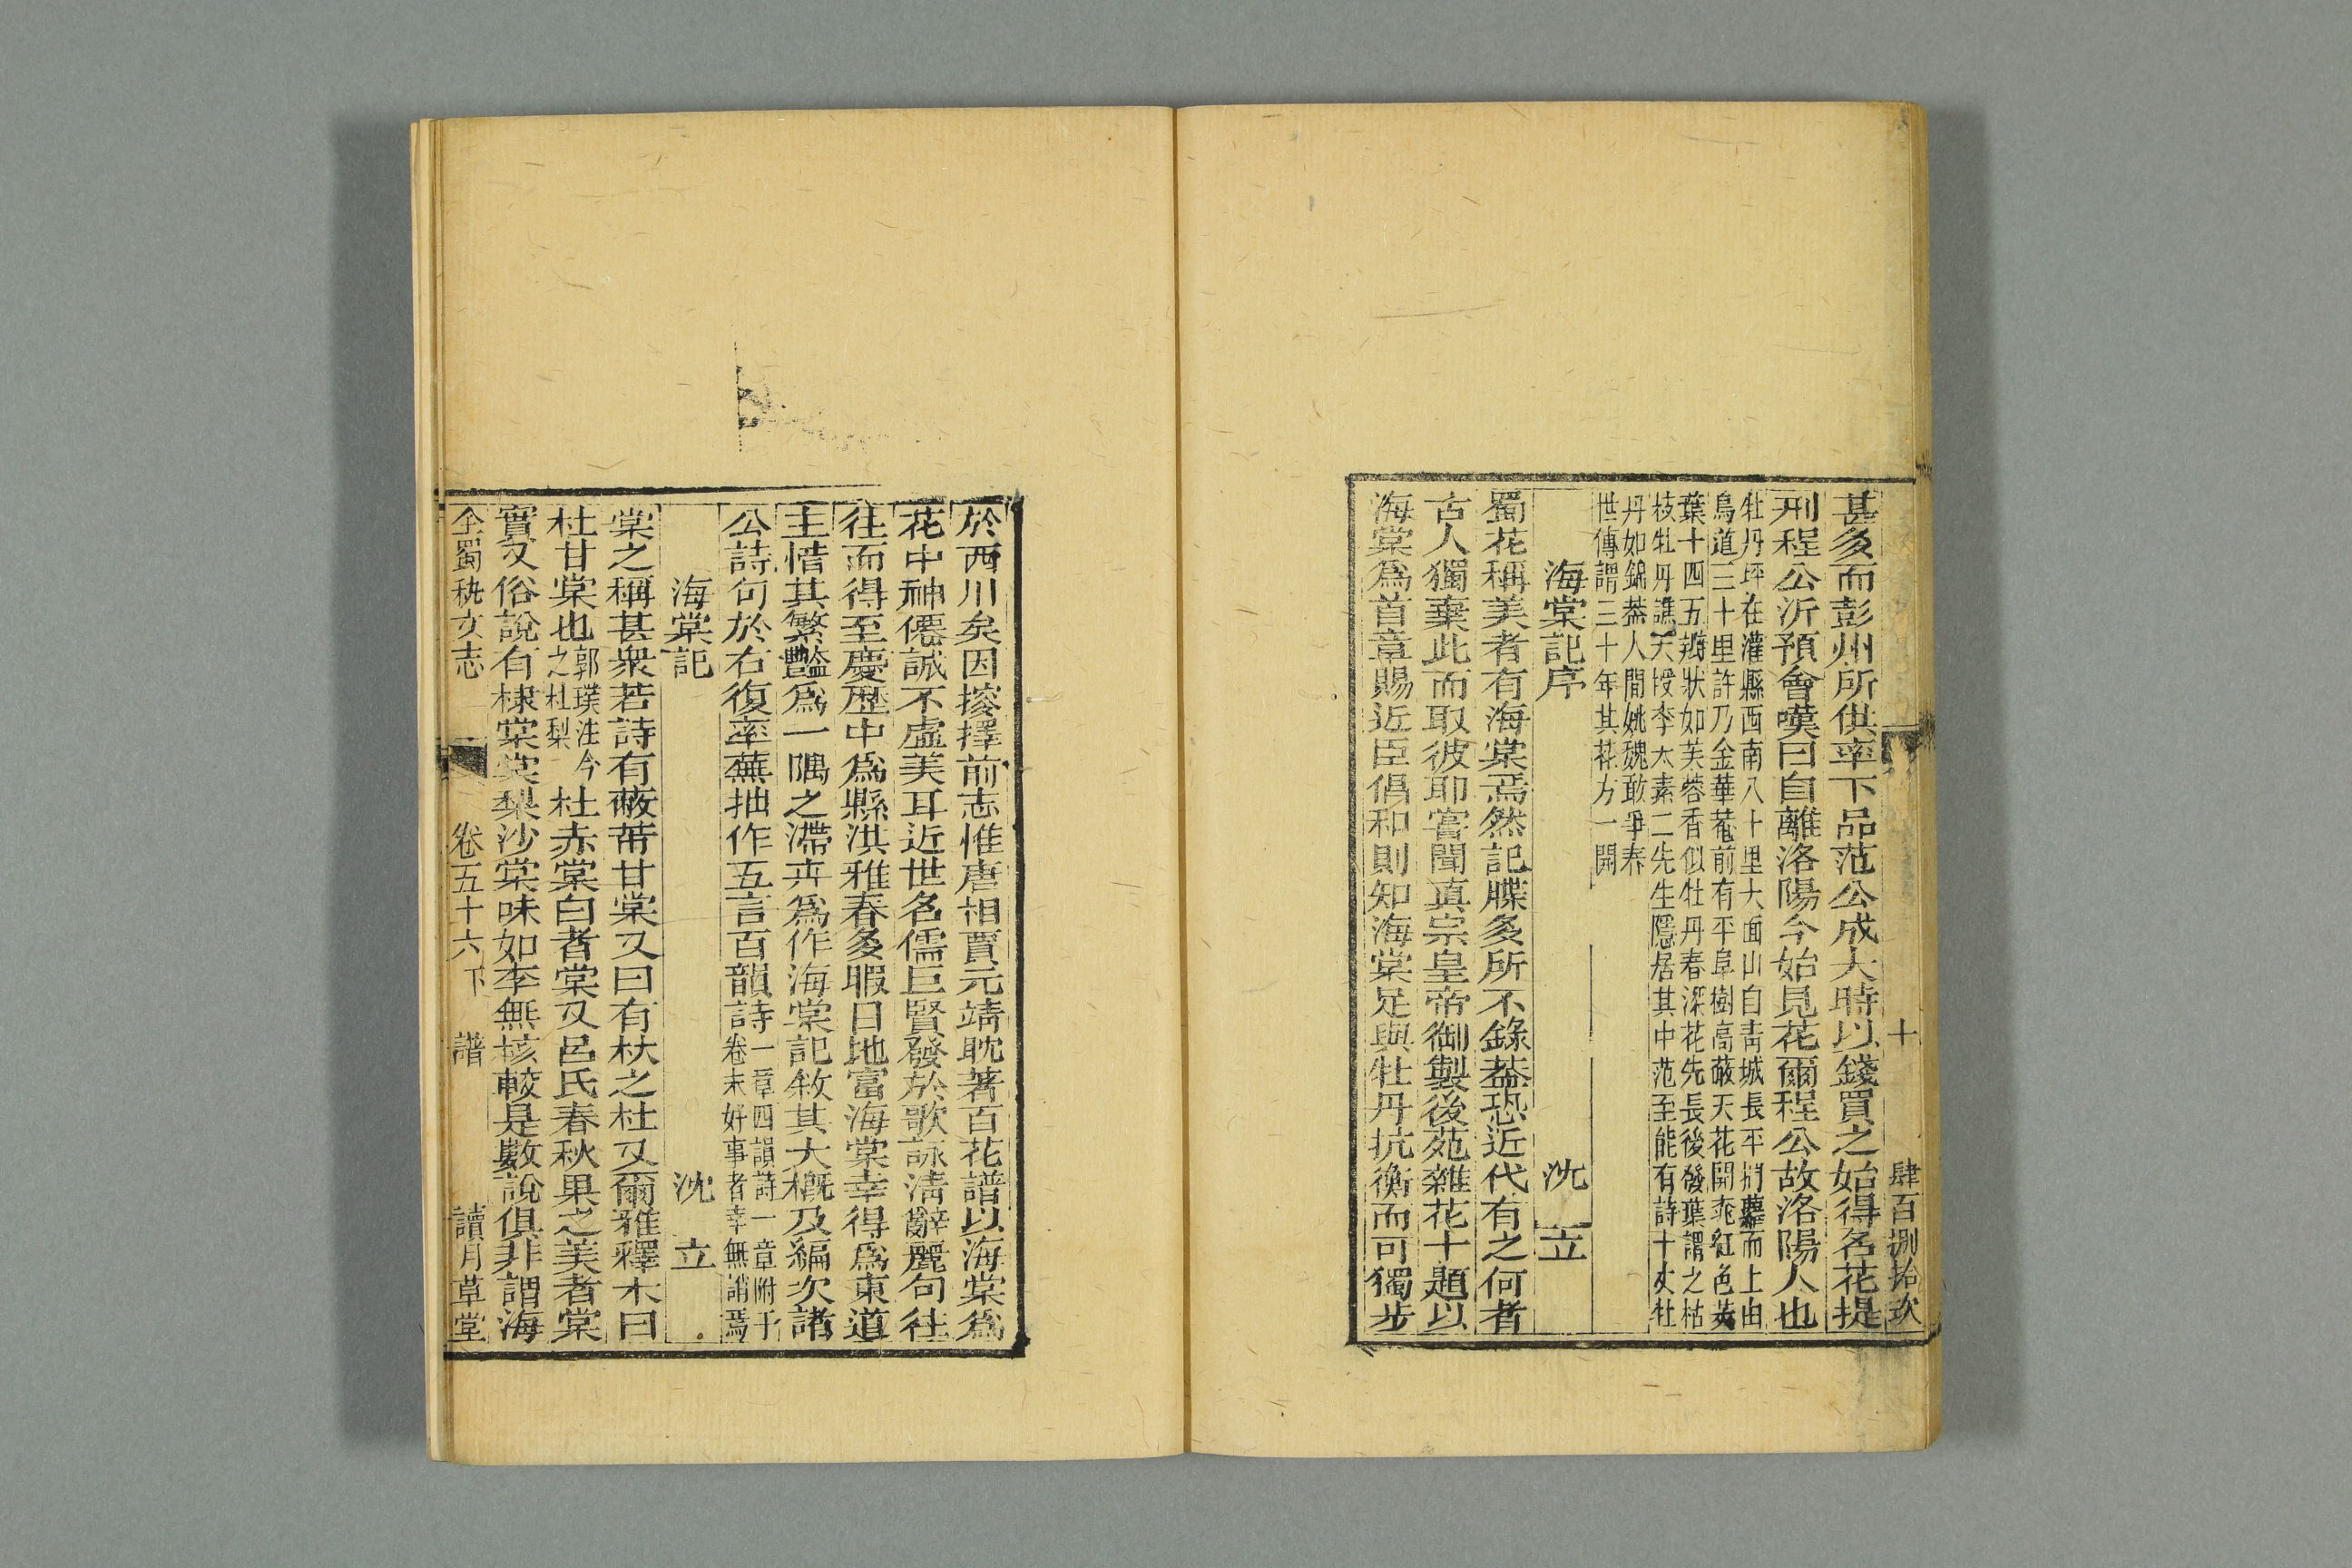 十 肆百捌拾玖
甚多而彭州所供率下品范公成大時以錢買之始得名花提
刑程公沂預會嘆曰自離洛陽今始見花爾程公故洛陽人也
牡丹坪在灌縣西南八十里大面山自青城長平捫蘿而上由
鳥道三十里許乃金華菴前有平阜樹高蔽天花開秾紅色英
葉十四五瓣狀如芙蓉香似牡丹春深花先長後發葉謂之枯
枝牡丹譙天授李太素二先生隱居其中范至能有詩十丈牡
丹如錦葢人間姚魏敢爭春
世傳謂三十年其花方一開
海棠記序 沈 立
蜀花稱美者有海棠焉然記牒多所不錄葢恐近代有之何者
古人獨棄此而取彼耶嘗聞眞宗皇帝御製後苑雜花十題以
海棠爲首章賜近臣倡和則知海棠足與牡丹抗衡而可獨步
於西川矣因搜擇前志惟唐相賈元靖耽著百花譜以海棠爲
花中神僊誠不虛美耳近世名儒巨賢發於歌詠清辭麗句往
往而得至慶歷中爲縣洪雅春多暇日地富海棠幸得爲東道
主惜其繁豔爲一隅之滯卉爲作海棠記敘其大槪及編次諸
公詩句於右復率蕪拙作五言百韻詩一章四韻詩一章附于
卷末好事者幸無誚焉
海棠記 沈 立
棠之稱甚衆若詩有蔽芾甘棠又曰有杕之杜又爾雅釋木曰
杜甘棠也郭璞注今之杜梨杜赤棠白者棠又呂氏春秋果之美者棠
實又俗說有棣棠棠梨沙棠味如李無核較是數說俱非謂海
全蜀秇文志 卷五十六下 譜 讀月草堂